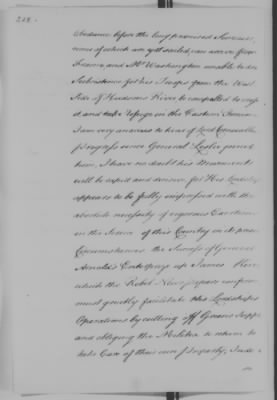 218.
Abundance before the long promised Succours,
none of which are yet sailed, can arrive from
France, and Mr. Washington unable to draw
Subsistence for his Troops from the West
Side of Hudsons River be compelled to cross
it, and take refuge in the Eastern Provinces
I am very anxious to hear of Lord Cornwallis's
Progress since General Leslie joined
him, I have no doubt his Movements
will be rapid and decisive for His Lordship
appears to be fully impressed with the
absolute necessity of vigorous Exertions
in the Service of this Country in its present
Circumstances the Success of General
Arnold's Enterprize up James River
which the Rebel News papers confirm
must greatly facilitate his Lordship's
Operations by cutting off Greens Supplies
and obliging the Militia to return to
take Care of their own Property, Inde-